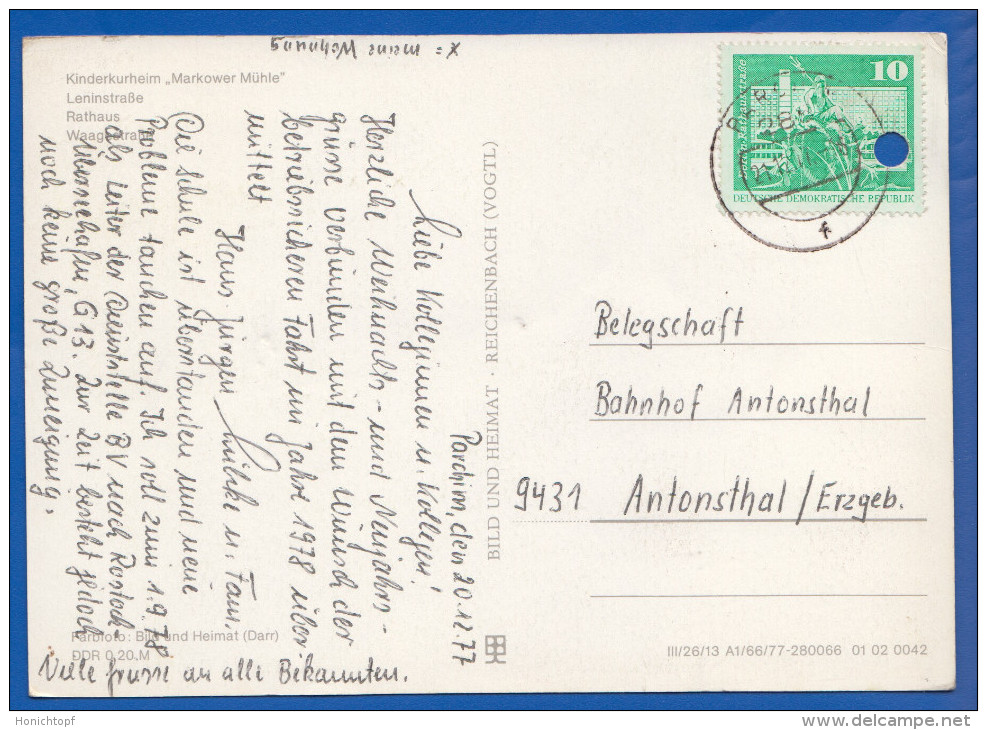 x = meine Wohnung
Kinderkurheim „Markower Mühle"
Leninstraße
Rathaus
Waagestraße
Parchim, den 20.12.77
Liebe Kolleginnen u. Kollegen!
Herzliche Weihnachts- und Neujahrs-
grüsse verbunden mit dem Wunsch der
betriebssicheren Fahrt im Jahre 1978 über
mittelt
Hans-Jürgen u. Fam.
Die Schule ist überstanden und neue
Probleme tauchen auf. Ich soll zum 1.9.78
als Leiter der Dienststelle BV nach Rostock
Überseehafen, G 13. Zur Zeit besteht jedoch
noch keine große Zuneigung.
Viele grüsse an alle Bekannten.
Farbfoto: Bild und Heimat (Darr)
DDR 0,20 M
BILD UND HEIMAT · REICHENBACH (VOGTL)
10
DEUTSCHE DEMOKRATISCHE REPUBLIK
Belegschaft
Bahnhof Antonsthal
9431 Antonsthal/Erzgeb.
III/26/13 A1/66/77-280066 01 02 0042
Honichtopf
http://www.delcampe.net